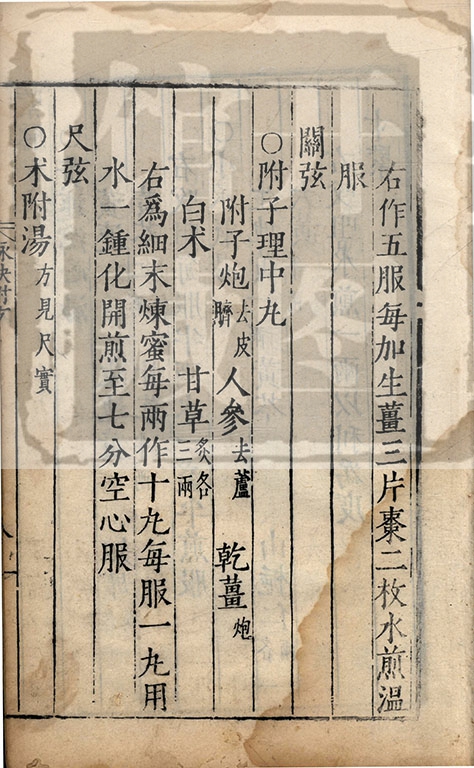 右作五服每加生薑三片棗二枚水煎温
服
關弦
○附子理中丸
附子炮去皮臍 人參去蘆 乾薑炮
白朮 甘草炙各三兩
右爲細末煉蜜每兩作十丸每服一丸用
水一鍾化開煎至七分空心服
尺弦
○术附湯方見尺實